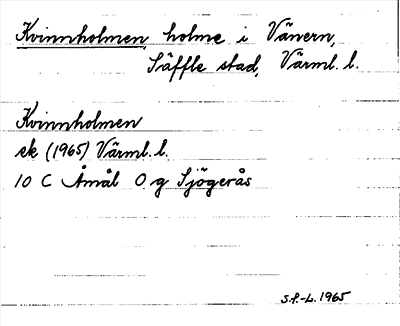 Kvinnholmen, holme i Vänern,
Säffle stad, Värml. l.
Kvinnholmen
ek (1965) Värml. l.
10 C Åmål O g Sjögerås
S.P.-L. 1965